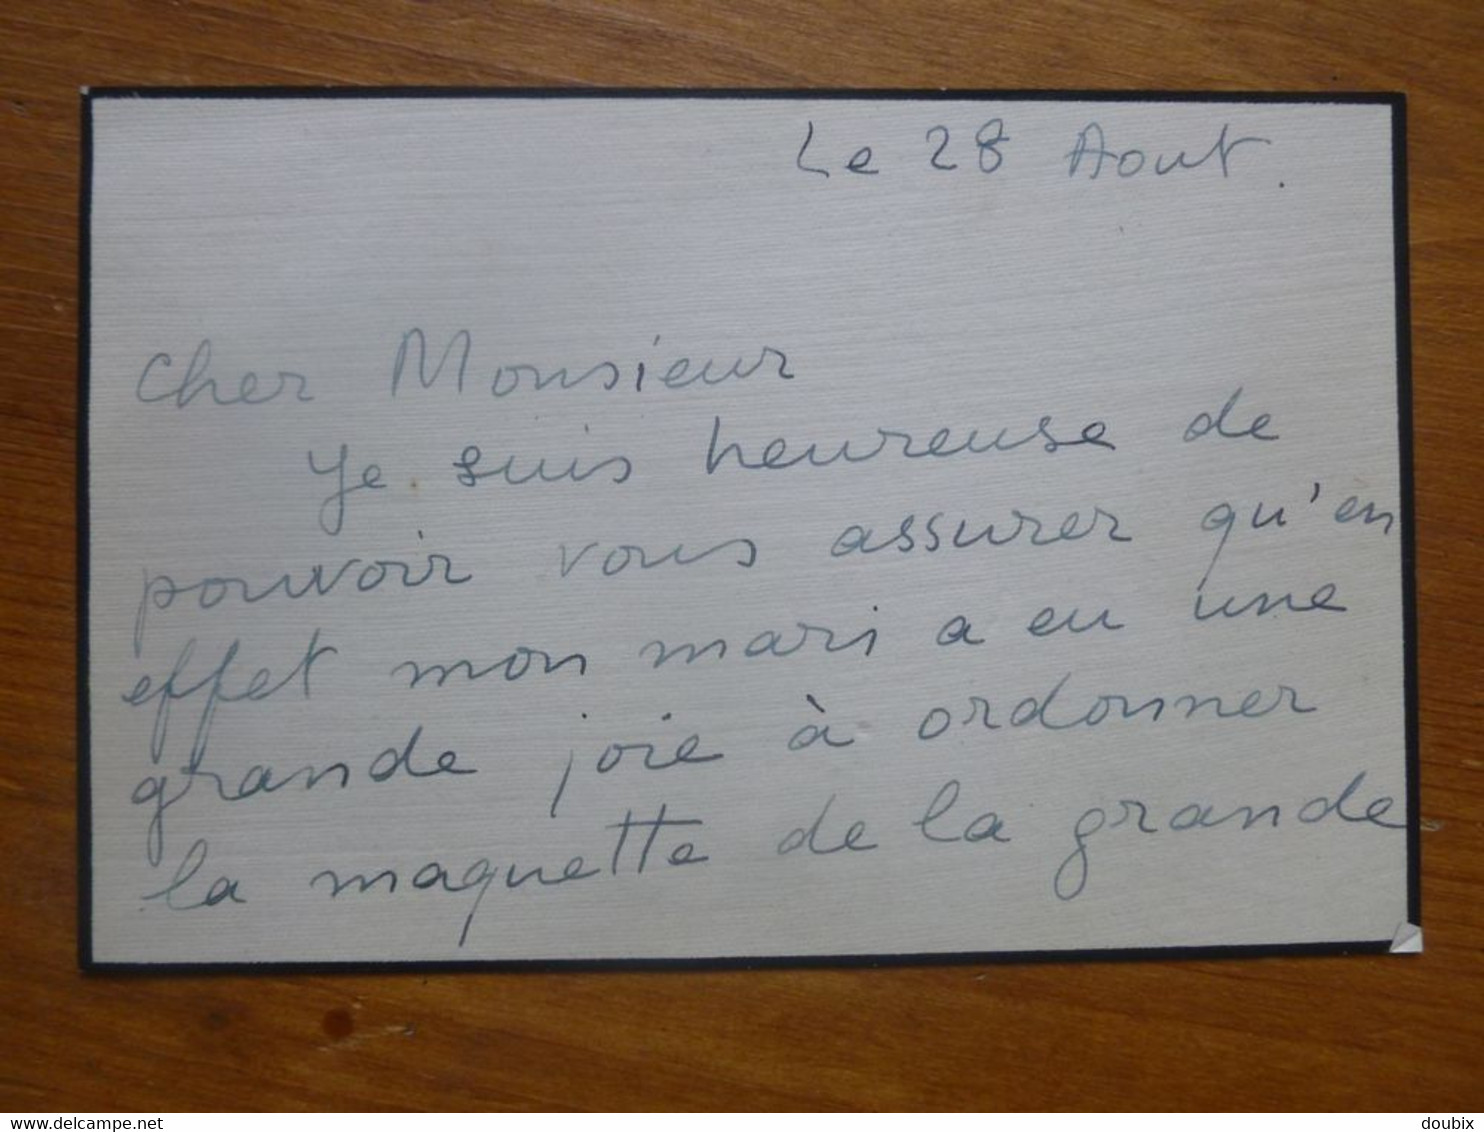 Le 28 Aout.
Cher Monsieur
Je suis heureuse de
pouvoir vous assurer qu'en
effet mon mari a eu une
grande joie à ordonner
la maquette de la grande
delcampe.net
doubix